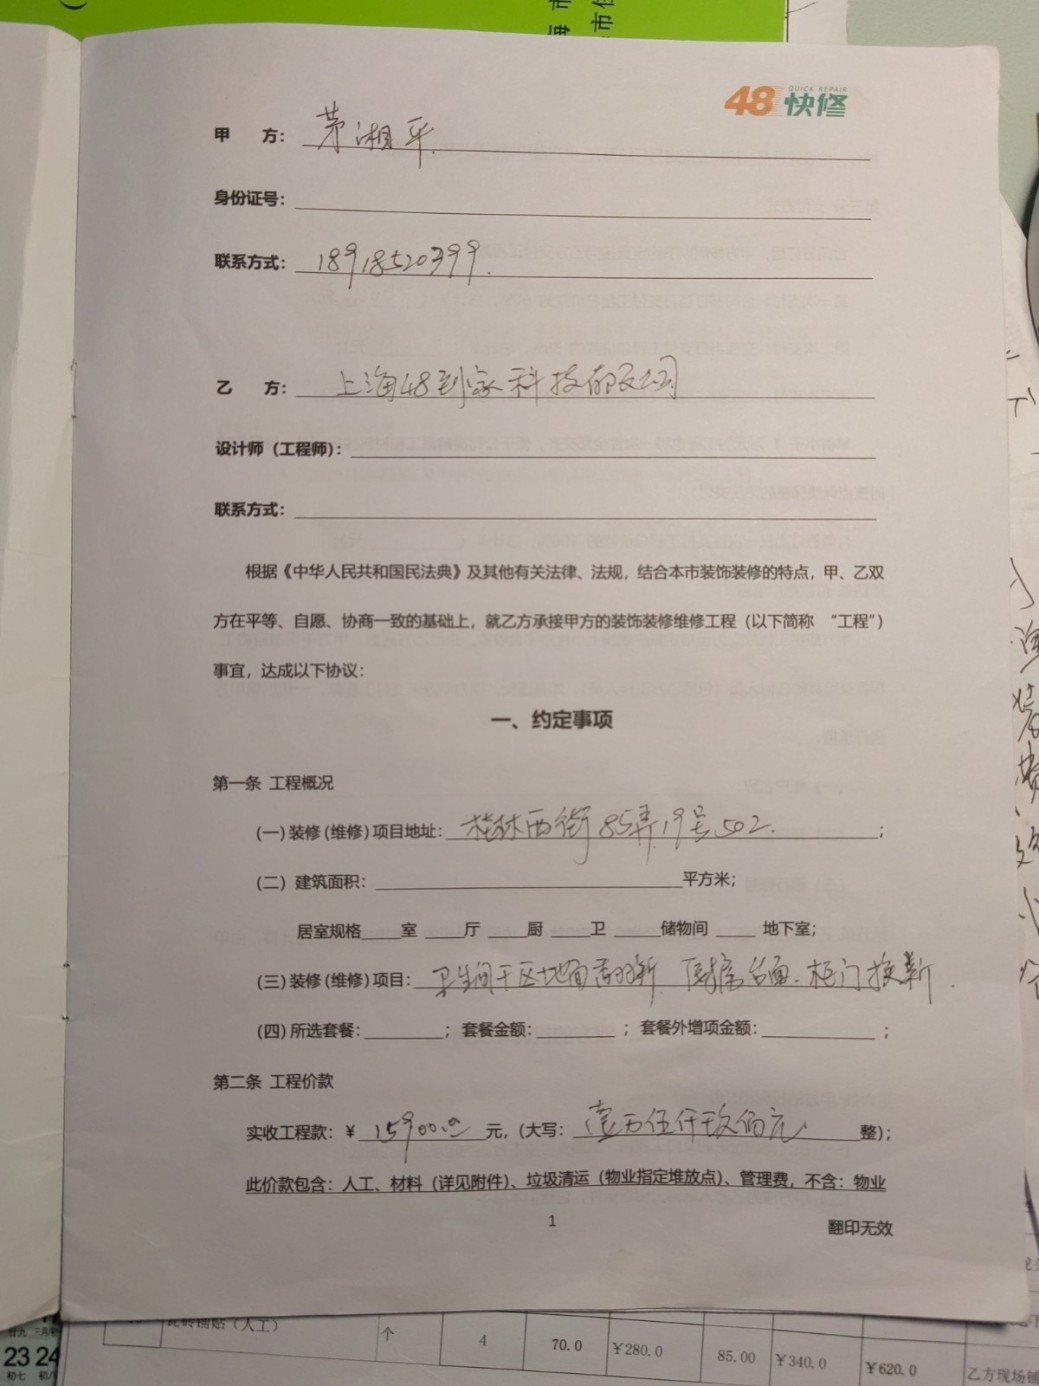 48快修
QUICK REPAIR
甲 方： 茅湘平
身份证号：
联系方式： 18918520399.
乙 方： 上海48到家科技有限公司
设计师（工程师）：
联系方式：
根据《中华人民共和国民法典》及其他有关法律、法规，结合本市装饰装修的特点，甲、乙双
方在平等、自愿、协商一致的基础上，就乙方承接甲方的装饰装修维修工程（以下简称 “工程”）
事宜，达成以下协议：
一、约定事项
第一条 工程概况
（一）装修（维修）项目地址： 桂林西街85弄19号502. ；
（二）建筑面积： 平方米；
居室规格 室 厅 厨 卫 储物间 地下室；
（三）装修（维修）项目： 卫生间干区地面翻新 厨房台面.柜门换新.
（四）所选套餐： ；套餐金额： ；套餐外增项金额： ；
第二条 工程价款
实收工程款：¥ 15900.00 元，（大写： 壹万伍仟玖佰元 整）；
此价款包含：人工、材料（详见附件）、垃圾清运（物业指定堆放点）、管理费，不含：物业
1
翻印无效
瓷砖铺贴（人工） 个 4 70.0 ¥280.0 85.00 ¥340.0 ¥620.0 乙方现场铺
23 24
初七